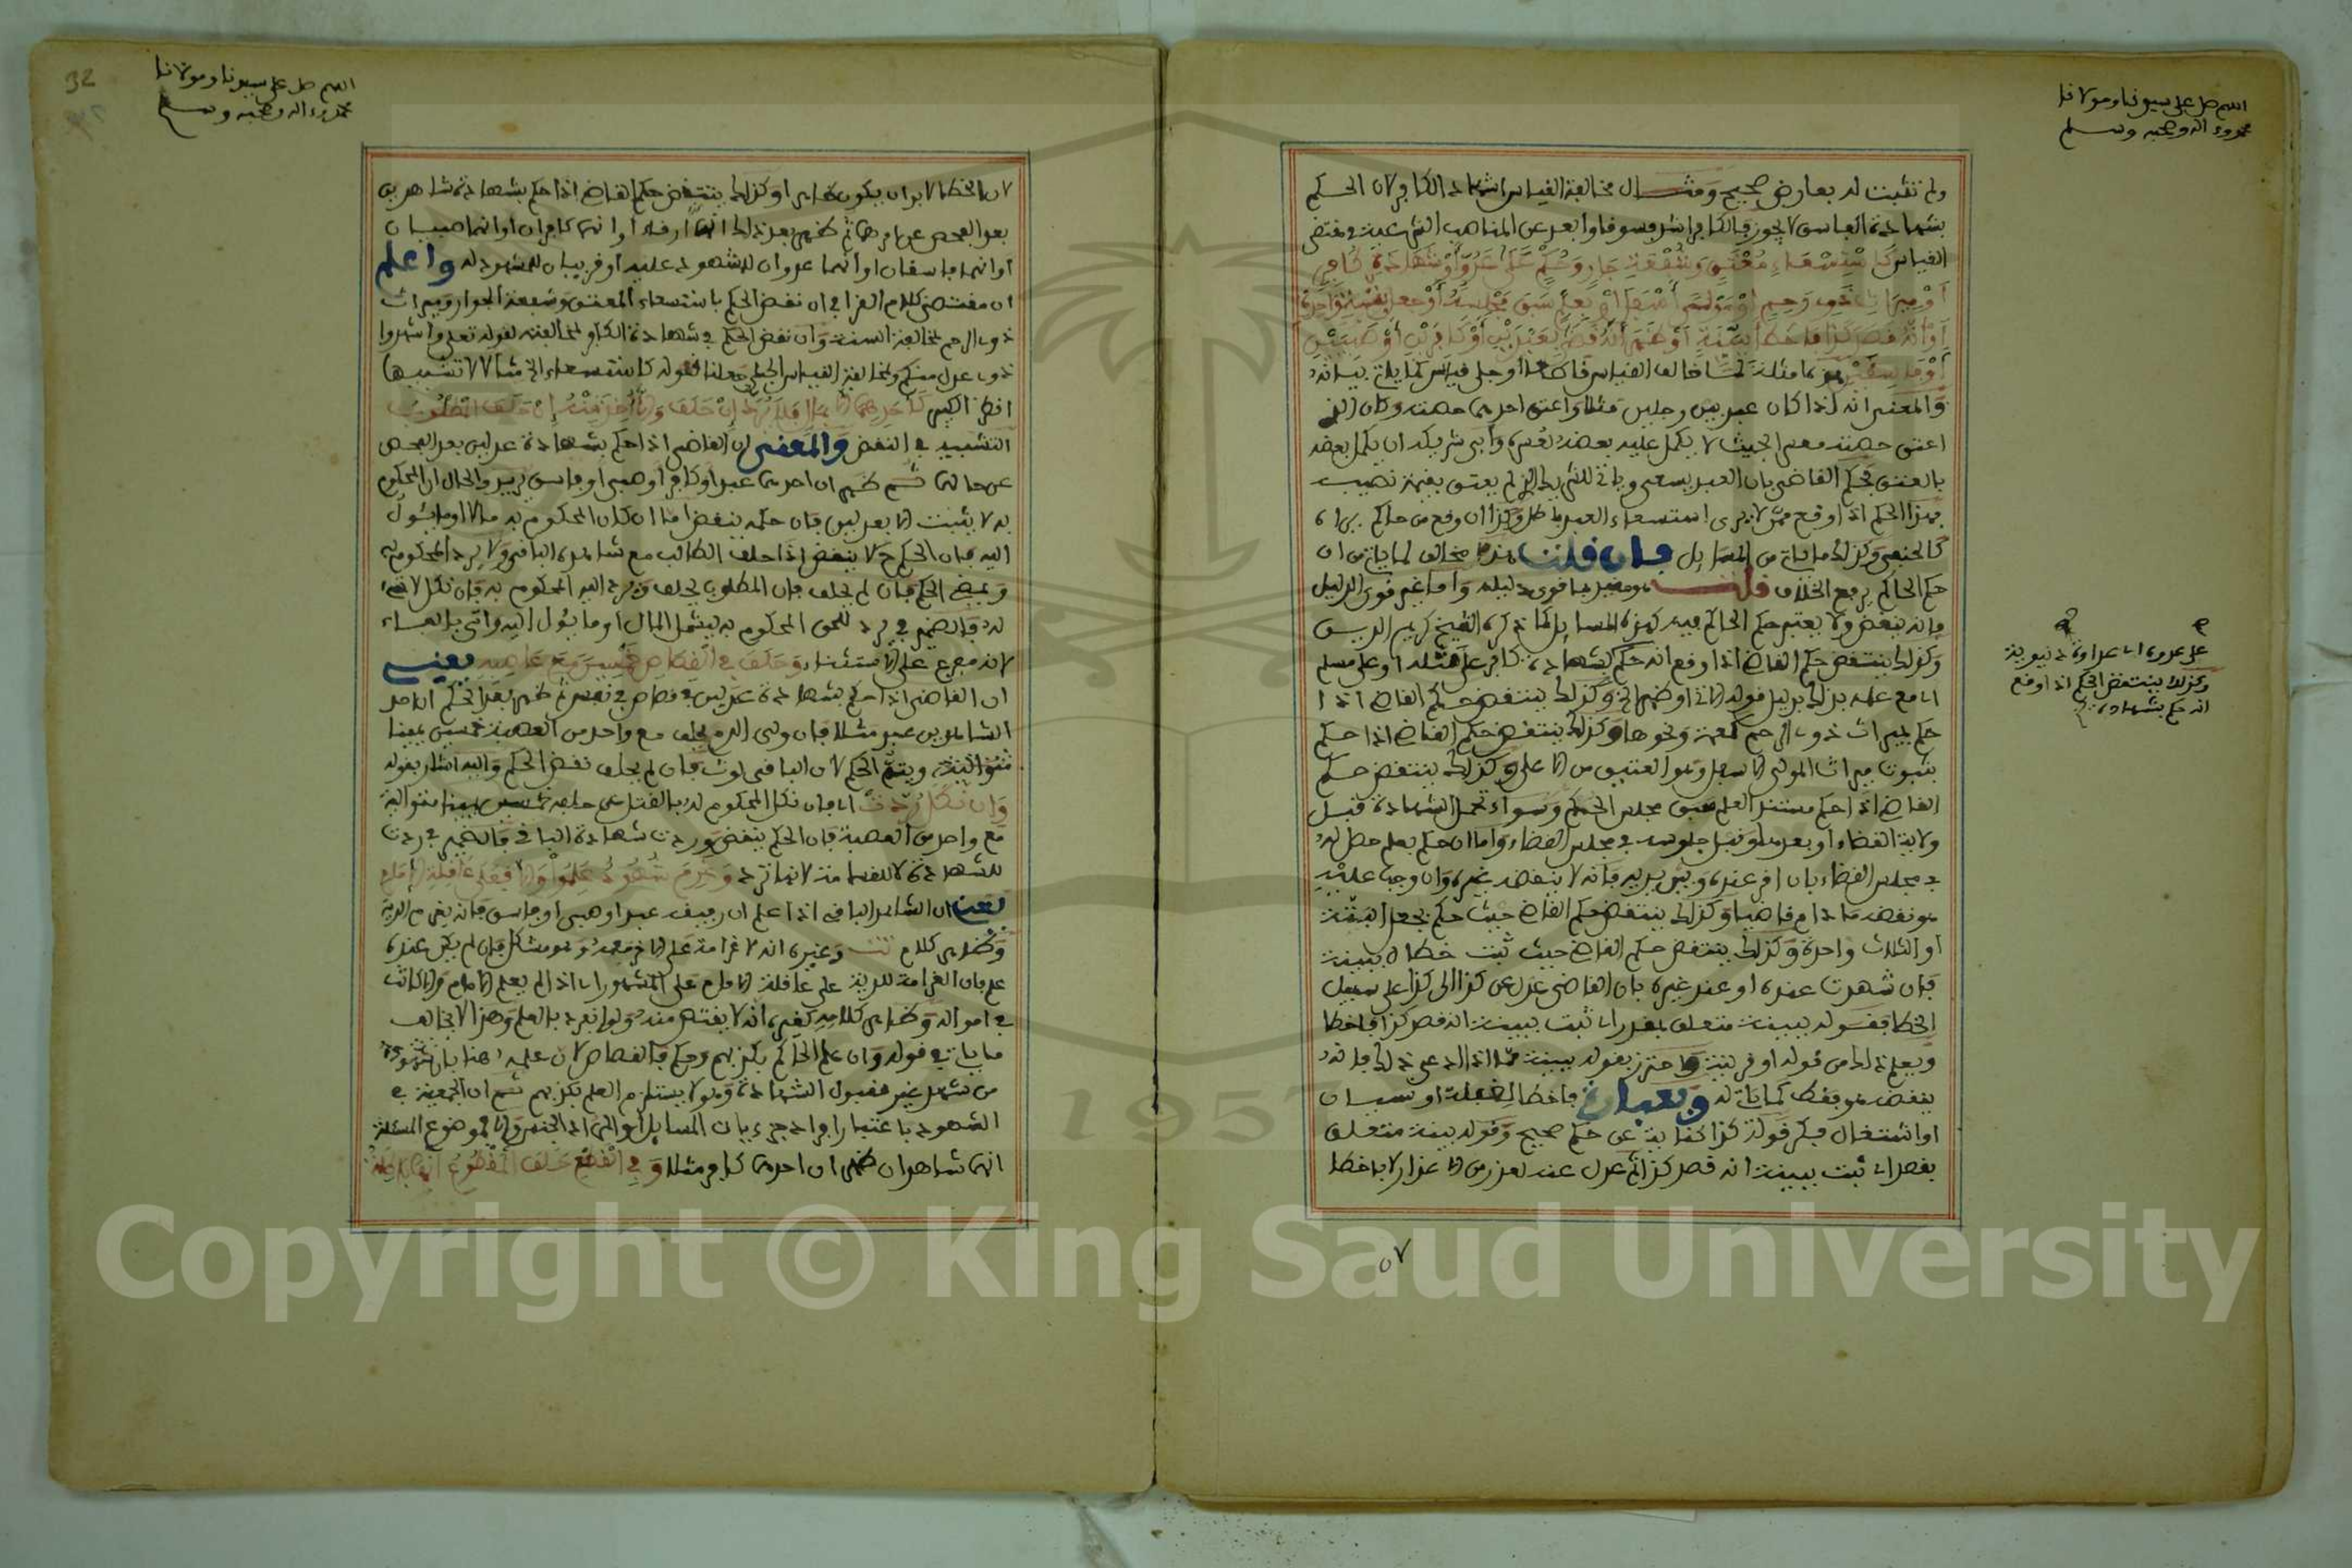 اللهم صل على سيدنا ومولانا
محمد وءاله وصحبه وسلم
ولم تثبت له بعارض صحيح ومثال مخالفة القياس شهادة الكافر لان الحكم
بشهادة الفاسق لا يجوز فالكافر اشد فسوقا وابعد عن المناصب الشرعية في مقتضى
القياس كاستسعاء معتق وشفعة جار وحكم على عدو او بشهادة كافر
او ميراث ذي رحم او مولى اسفل او بعلم سبق مجلسه او جعل بتة واحدة
او انه قصد كذا فاخطا ببينة او ظهر انه قضى بعبدين او كافرين او صبيين
او فاسقين
والمعنى انه اذا كان عبد بين رجلين مثلا واعتق احدهما حصته وكان الذي
اعتق حصته معسرا بحيث لا يكمل عليه بعضه لعسره وابى شريكه ان يكمل بعضه
بالعتق فحكم القاضي بان العبد يسعى وياتي للشريك الذي لم يعتق بقيمة نصيبه
فهذا الحكم اذا وقع ممن لا يرى استسعاء العبد باطل وكذا ان وقع من حاكم يراه
كالحنفي وكذلك ما ياتي من المسايل فان قلت هذا مخالف لما ياتي من ان
حكم الحاكم يرفع الخلاف قلت هو مقيد بما قوي دليله واما غير قوي الدليل
فانه ينقض ولا يعتبر حكم الحاكم فيه كهذه المسايل كما ذكره الشيخ كريم الدين
وكذلك ينتقض حكم القاضي اذا وقع انه حكم بشهادة كافر على مثله او على مسلم
اي مع علمه بذلك بدليل قوله الاتي او ظهر الخ وكذلك ينتقض حكم القاضي اذا
حكم بميراث ذوي الرحم كعمة ونحوها وكذلك ينتقض حكم القاضي اذا حكم
بثبوت ميراث المولى الاسفل وهو العتيق من الاعلى وكذلك ينتقض حكم
القاضي اذا حكم مستند العلم سبق مجلس الحكم وسواء تحمل الشهادة قبل
ولاية القضاء او بعدها وقبل جلوسه في مجلس القضاء واما ان حكم بعلم حصل له
في مجلس القضاء بان اقر عنده وبين يديه فانه لا ينقضه غيره وان وجب عليه
هو نقضه ما دام قاضيا وكذلك ينتقض حكم القاضي حيث حكم بجعل البتة
او الثلاث واحدة وكذلك ينتقض حكم القاضي حيث ثبت خطاه ببينة
فان شهدت عنده او عند غيره بان القاضي عدل عن كذا الى كذا على سبيل
الخطا فقوله ببينة متعلق بمقدر اي ثبت ببينة انه قصد كذا فاخطا
ويعلم ذلك من قوله او قرينة واحترز بقوله ببينة مما اذا ادعى ذلك فانه
ينقضه هو فقط كما ياتي له وبعبارة فاخطا لغفلة او نسيان
او اشتغال فكر قوله كذا كناية عن حكم صحيح وقوله ببينة متعلق
بقصد اي ثبت ببينة انه قصد كذا ثم عدل عنه لعذر من الاعذار لا بد اخطا
على عدوه اي عداوة دنيوية
وكذلك ينتقض الحكم اذا وقع
انه حكم بشهادة
٥٧
32
اللهم صل على سيدنا ومولانا
محمد وءاله وصحبه وسلم
لان الخطا لا بد ان يكون ظاهرا وكذلك ينتقض حكم القاضي اذا حكم بشهادة شاهدين
بعد الفحص عن امرهما ثم ظهر بعد ذلك انهما ارقاء او انهما كافران او انهما صبيان
او انهما فاسقان او انهما عدوان للمشهود عليه او قريبان للمشهود له واعلم
ان مقتضى كلام القرافي ان نقض الحكم باستسعاء المعتق وشفعة الجوار وميراث
ذوي الرحم لمخالفة السنة وان نقض الحكم في شهادة الكافر لمخالفته لقوله تعالى واشهدوا
ذوي عدل منكم ولمخالفة القياس الجلي جعلنا قوله كاستسعاء الخ مثالا لا تشبيها
انظر الكبير كاحدهما الا بمال فلا يرد ان حلف والا اخذ منه ان حلف المطلوب
التشبيه في النقض والمعنى ان القاضي اذا حكم بشهادة عدلين بعد الفحص
عن حالهما ثم ظهر ان احدهما عبد او كافر او صبي او فاسق يريد والحال ان المحكوم
به لا يثبت الا بعدلين فان حكمه ينقض اما ان كان المحكوم به مالا او ما يئول
اليه فان الحكم ح لا ينقض اذا حلف الطالب مع شاهده الباقي ولا يرد المحكوم به
ويمضي الحكم فان لم يحلف فان المطلوب يحلف ويرد اليه المحكوم به فان نكل لا شيء
له فالضمير في يرد للحق المحكوم به ليشمل المال او ما يئول اليه واتى بالفاء
لانه مفرع على الاستثناء وحلف في القصاص خمسين مع عاصبه يعني
ان القاضي اذا حكم بشهادة عدلين في قصاص في نفس ثم ظهر بعد الحكم ان احد
الشاهدين عبد مثلا فان ولي الدم يحلف مع واحد من العصبة خمسين يمينا
متوالية ويتم الحكم لان الباقي لوث فان لم يحلف نقض الحكم واليه اشار بقوله
وان نكل ردت اي فان نكل المحكوم له بالقتل عن حلفه خمسين يمينا متوالية
مع واحد من العصبة فان الحكم ينقض وردت شهادة الباقي فالضمير في ردت
للشهادة لا للغرامة لانها ترد وغرم شهود علموا والا فعلى عاقلة الامام
يعني ان الشاهد الباقي اذا علم ان رفيقه عبد او صبي او فاسق فانه يغرم الدية
وظاهر كلام تت وغيره انه لا غرامة على الاخر معه وهو مشكل فان لم يكن عنده
علم فان الغرامة للدية على عاقلة الامام على المشهور اي اذا لم يعلم الامام والا كانت
في امواله وظاهر كلامه كغيره انه لا يقتص منه ولو انفرد بالعلم وهذا لا يخالف
ما ياتي في قوله وان علم الحاكم بكذبهم وحكم فالقصاص لان علمه هنا بان شهوده
من شهد غير مقبول الشهادة وهو لا يستلزم العلم بكذبهم ثم ان الجمعية في
الشهود باعتبار افراد جزءيات المسايل او الى ان ال للجنس والا فموضوع المسئلة
انهما شاهدان ظهر ان احدهما كافر مثلا وفي القطع حلف المقطوع انها باطلة